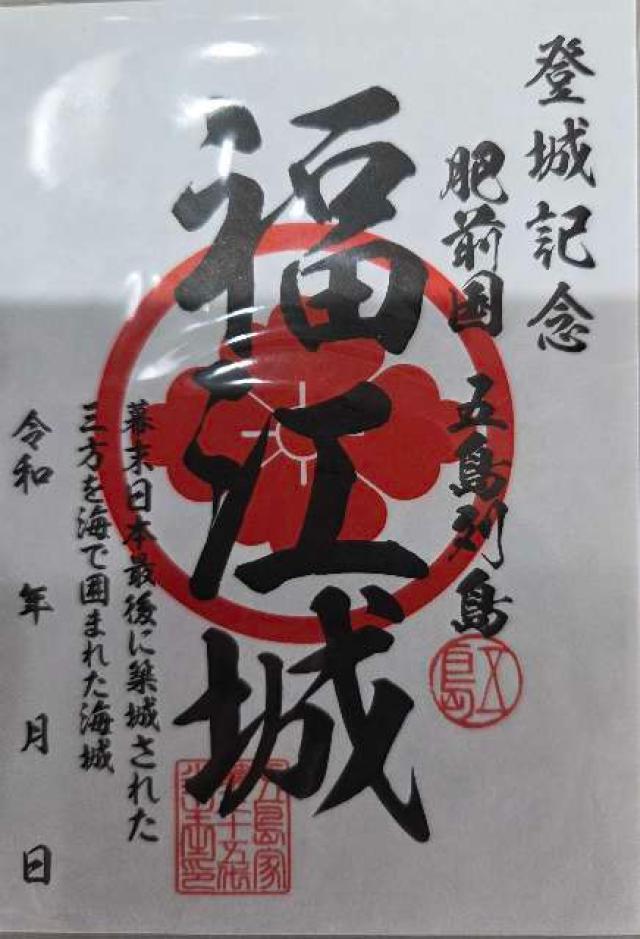 登城記念
肥前国 五島列島
五島
福江城
幕末日本最後に築城された
三方を海で囲まれた海城
令和 年 月 日